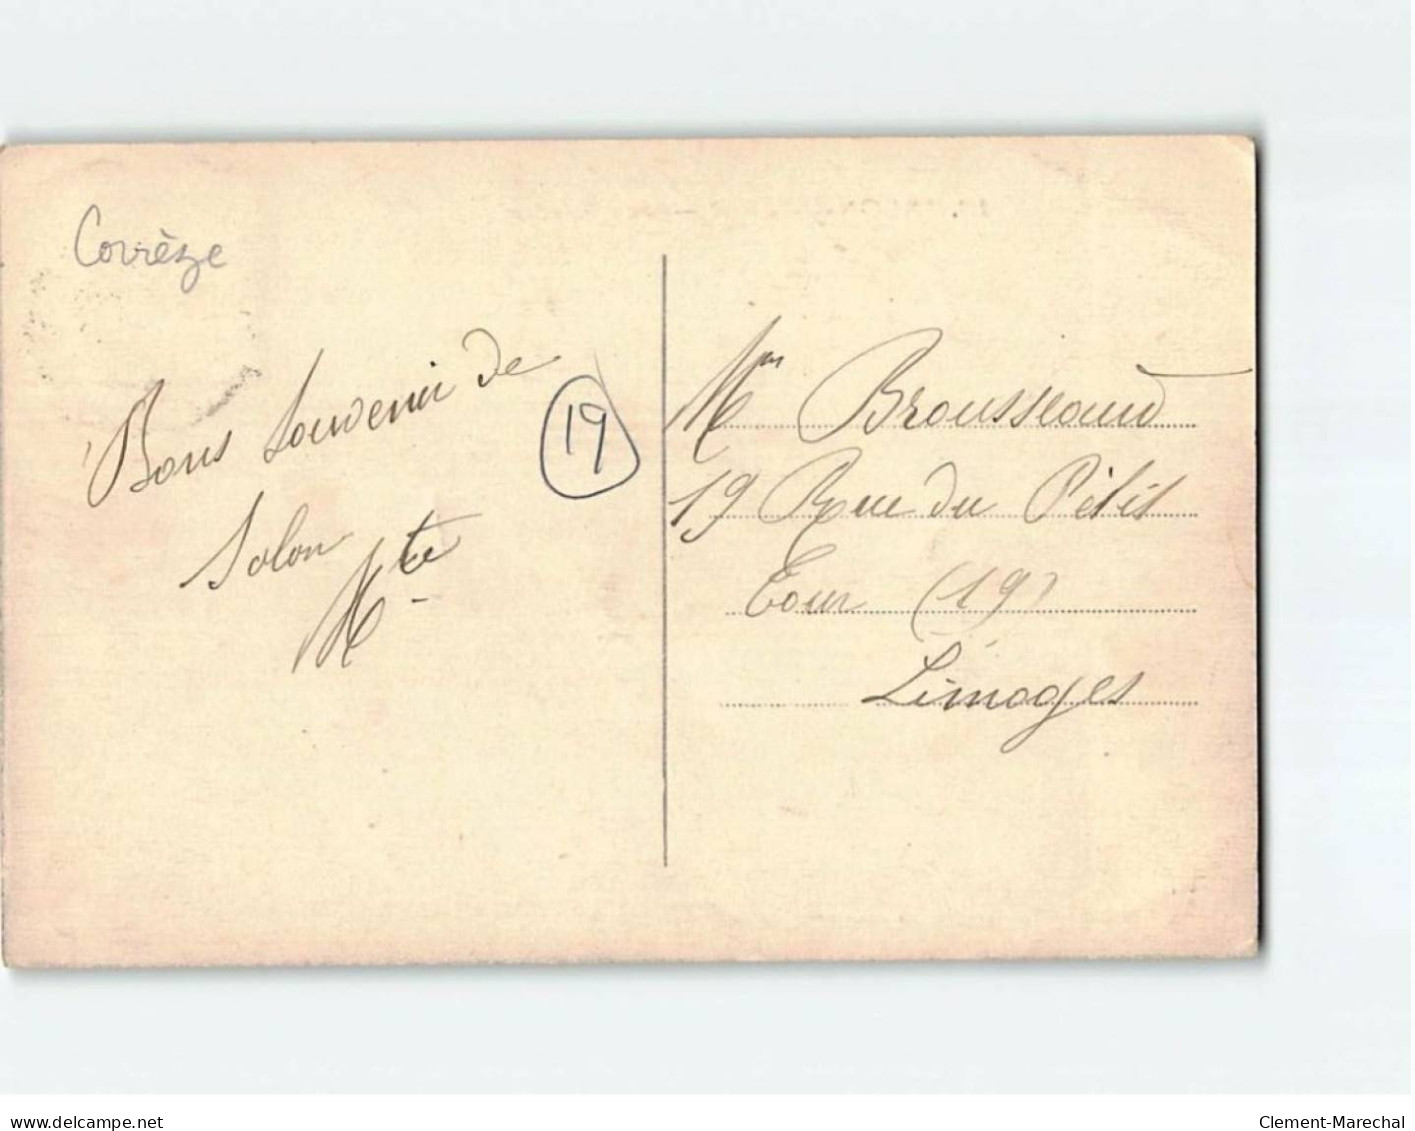 Corrèze
Bons Souvenir de
Salon
Mte
19
Mr Brousseaud
19 Rue du Petit
Tour (19)
Limoges
delcampe.net
Clement-Marechal